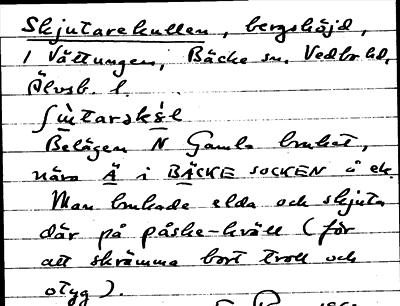 Skjutarekullen, bergshöjd,
i Vättungen, Bäcke sn. Vedbo hd,
Älvsb. l.
Belägen N Gamla bruket,
nära Ä i BÄCKE SOCKEN å ek.
Man brukade elda och skjuta
där på påske-kväll (för
att skrämma bort troll och
otyg).